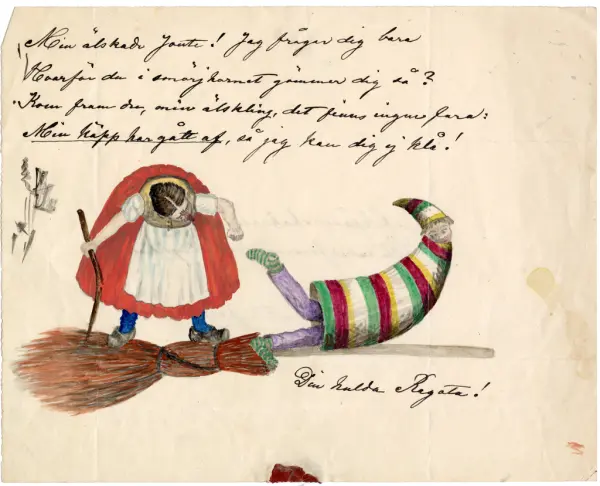 Min älskade Jonte! Jag frågar dig bara
Hvarför du i smörjhornet gömmer dig så?
Kom fram du, min älskling, det finns ingen fara:
Min käpp har gått af, så jag kan dig ej klå!
Din hulda Agata!